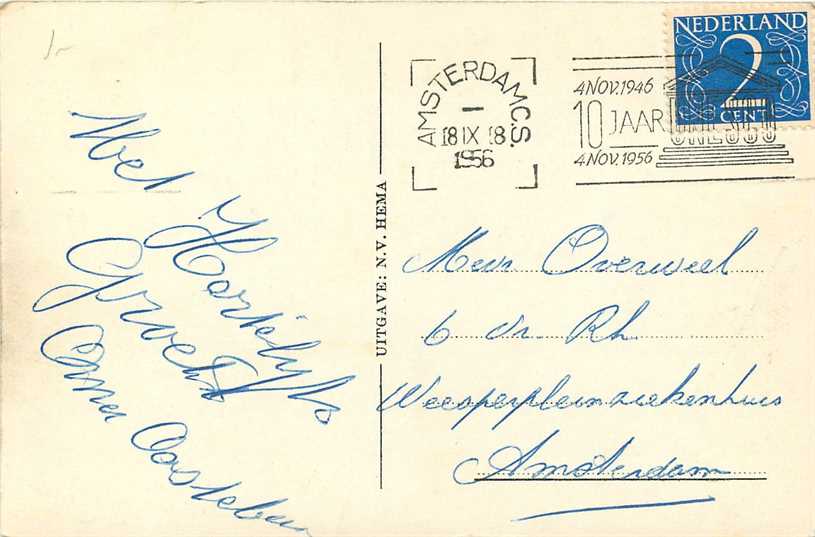 Met
Hartelijk
Groet
UITGAVE: N.V. HEMA
AMSTERDAM C.S.
18 IX 18
1956
4 NOV. 1946
10 JAAR UNESCO
4 NOV. 1956
NEDERLAND
2
CENT
Mevr Overweel
6 dr Rh.
Weesperpleinziekenhuis
Amsterdam